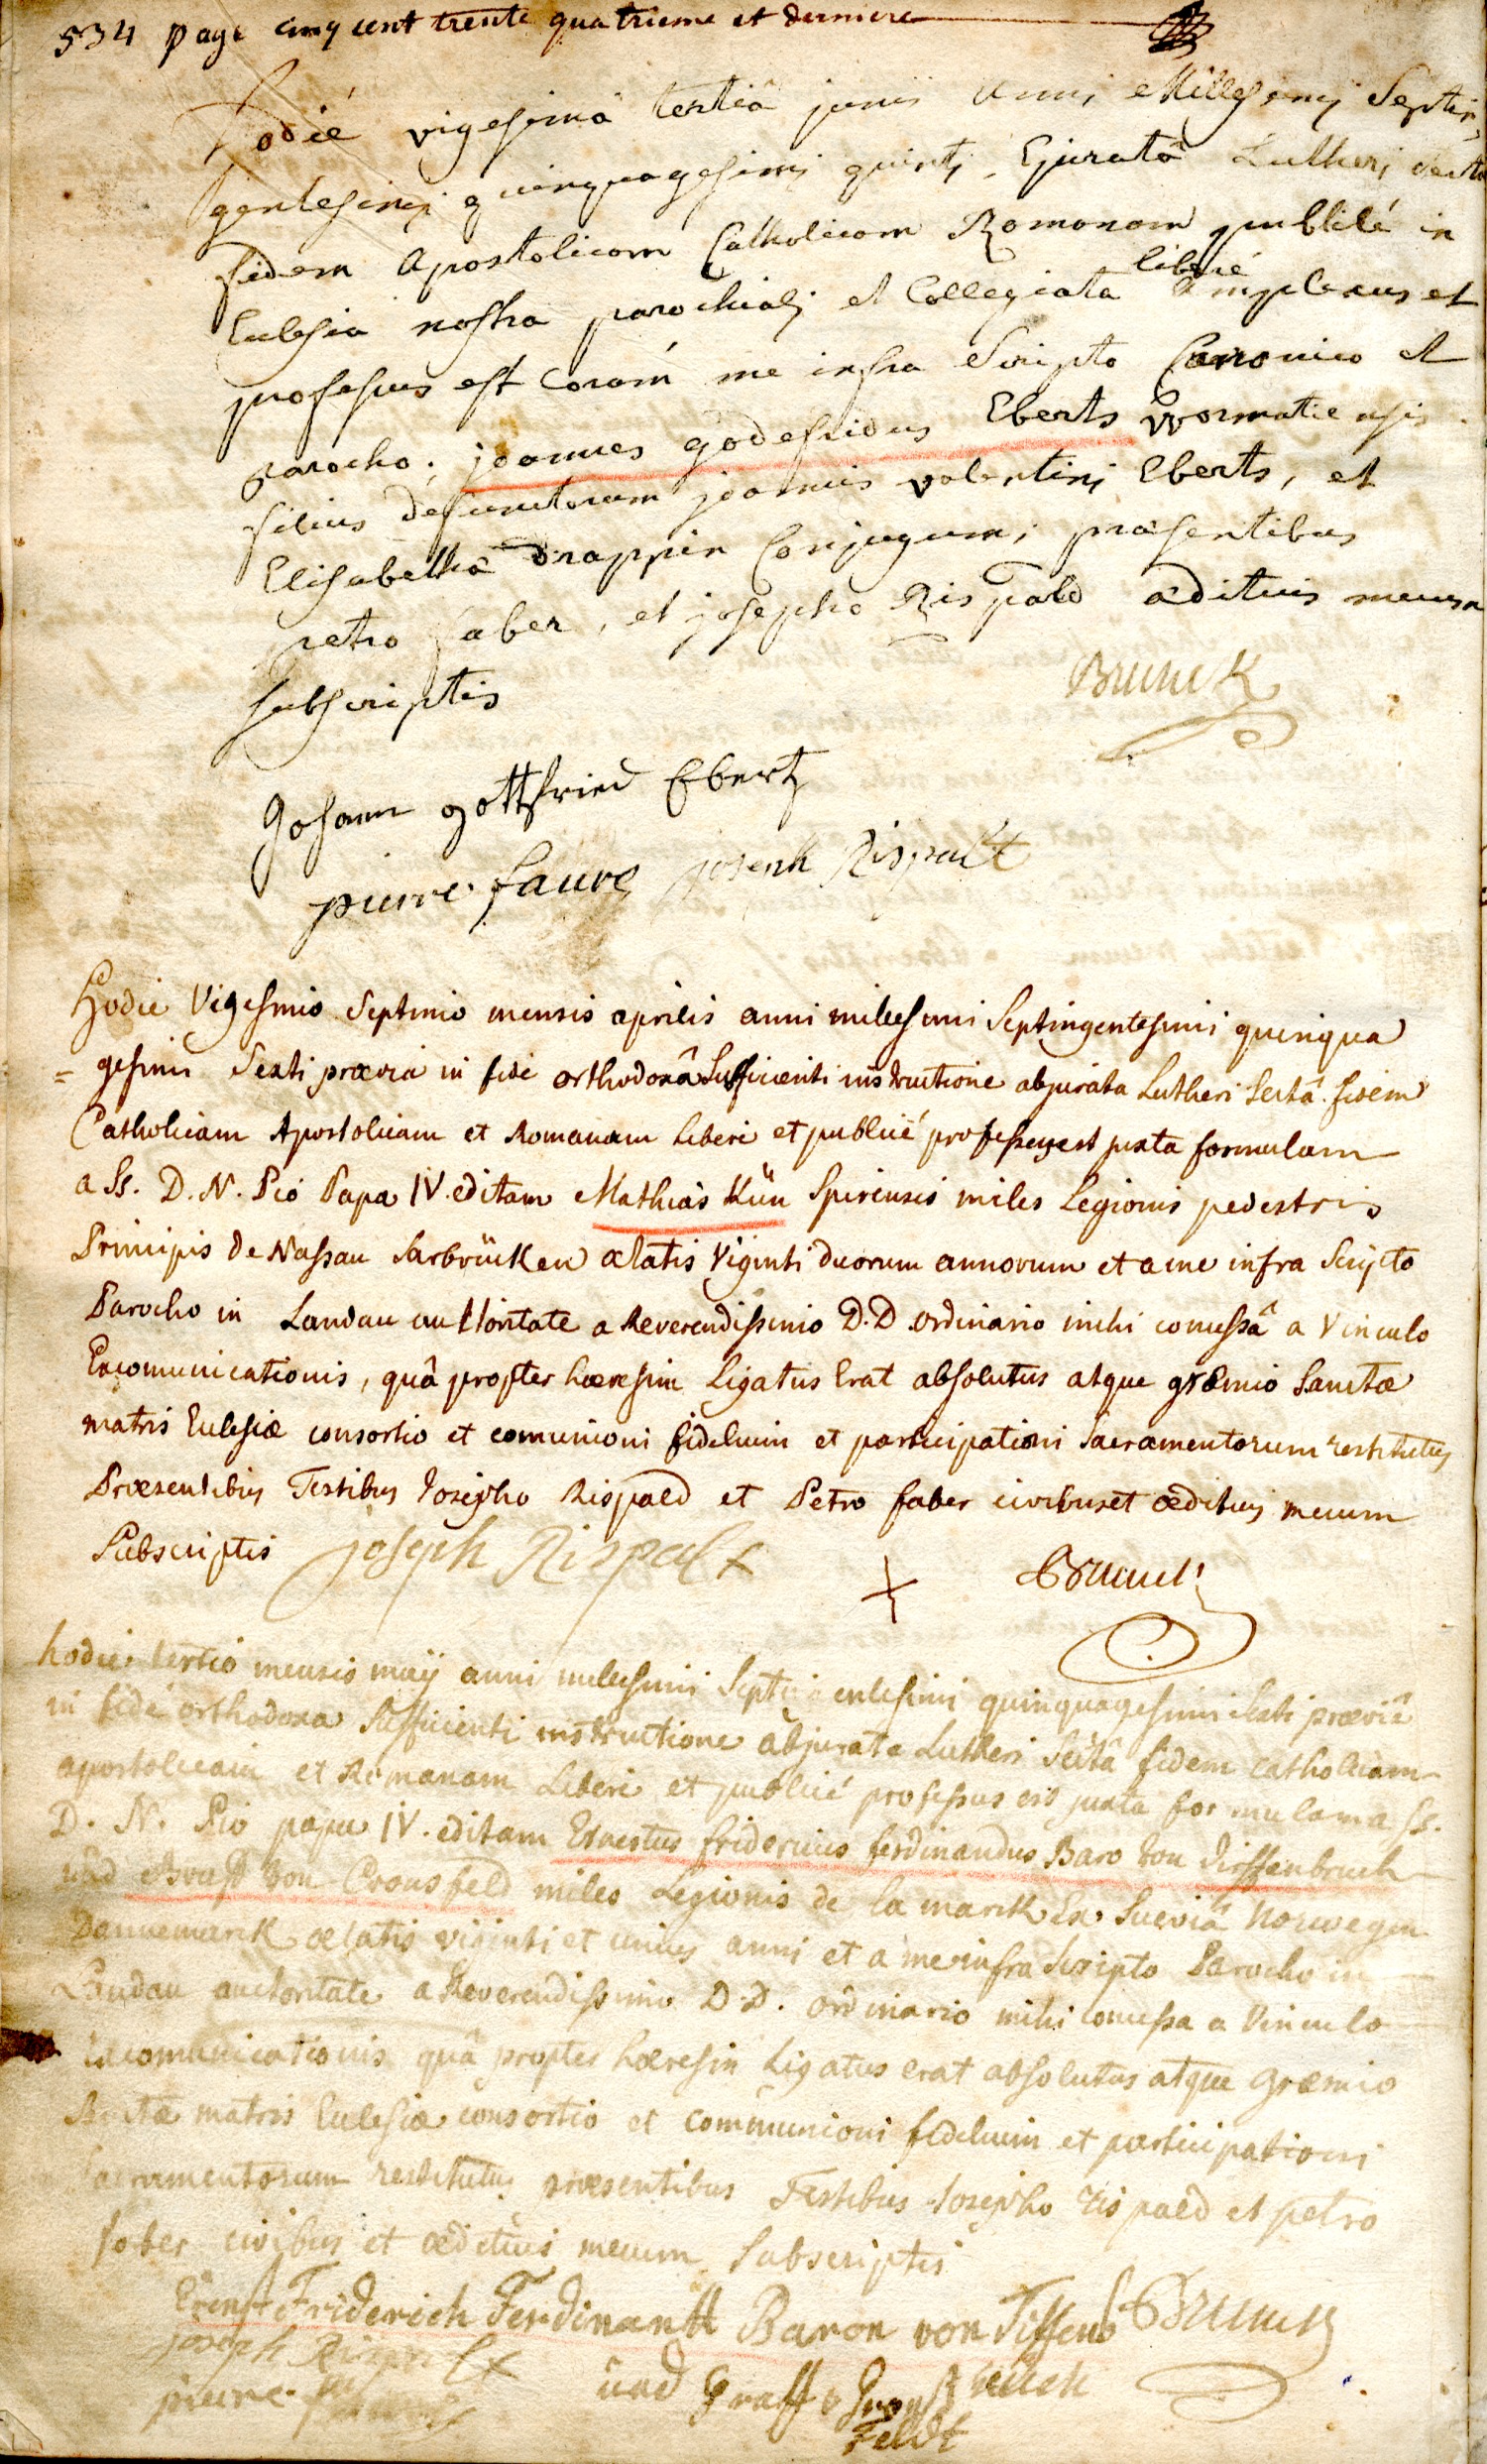 534 page cinq cent trente quatrieme et derniere
Hodié vigesimâ tertiâ junii anni Millesimj Septin,
gentesimj quinquagesimj quintj, Ejuratâ Lutherj Secta
fidem Apostolicam Catholicam Romanam publicé in
Eclesia nostra parochialj et Collegiata liberé amplexus et
professus est Coram me infra Scripto Canonico et
parocho, joannes godefridus Eberts wormatiensis
filius defunctorum joannis valentinj Eberts, et
Elisabetha Drappin Conjugum; præsentibus
petro faber, et josepho Rispald ædituis mecum
subscriptis
Brunck
Johann gottfried Ebertz
pierre faure joseph Rispalt
Hodie Vigesimo Septimo mensis aprilis anni millesimi Septingentesimi quinqua
= gesimi Sexti prævia in fide orthodoxâ Sufficienti instructione abjurata Lutheri Sectâ fidem
Catholicam Apostolicam et Romanam liberé et publicé professus est juxta formulam
a Ss. D. N. Pio Papa IV. editam Mathias Kün Spirensis miles Legionis pedestris
Principis de Nassau Sarbrücken ætatis Viginti duorum annorum et a me infra Scripto
Parocho in Landau authoritate a Reverendissimo D.D. ordinario mihi comissâ a Vinculo
Excomunicationis, quâ propter hæresim Ligatus Erat absolutus atque græmio Sanctæ
matris Eclesiæ consortio et comunioni fidelium et participationi Sacramentorum restitutus
Præsentibus Testibus Josepho Rispald et Petro faber civibus et ædituis mecum
Subscriptis joseph Rispalt Brunck
hodie tertio mensis maÿ anni millesimi Septingentesimi quinquagesimi Sexti præviâ
in fide orthodoxa Sufficienti instructione abjurata Lutheri Sectâ fidem catholicam
apostolicam et Romanam Liberé et publicé professus est juxta formulam a Ss.
D. N. Pio papa IV. editam Ernestus fridericus ferdinandus Baro von Tieffenbruch
und Graff von Cronsfeld miles Legionis de la marck Ex Sueviâ Norwegen
Dannemarck ætatis viginti et unius anni et a me infra Scripto Parocho in
Landau auctoritate a Reverendissimo D.D. ordinario mihi comissa a Vinculo
Excomunicationis quâ propter hæresin Ligatus erat absolutus atque græmio
Sanctæ matris Eclesiæ consortio et communioni fidelium et participationi
Sacramentorum restitutus præsentibus Testibus Josepho rispald et petro
faber civibus et ædituis mecum Subscriptis
Ernst Friderich Ferdinantt Baron von Tiffenbruch Brunck
joseph Rispalt und Graff v Gronsfeldt
pierre faure